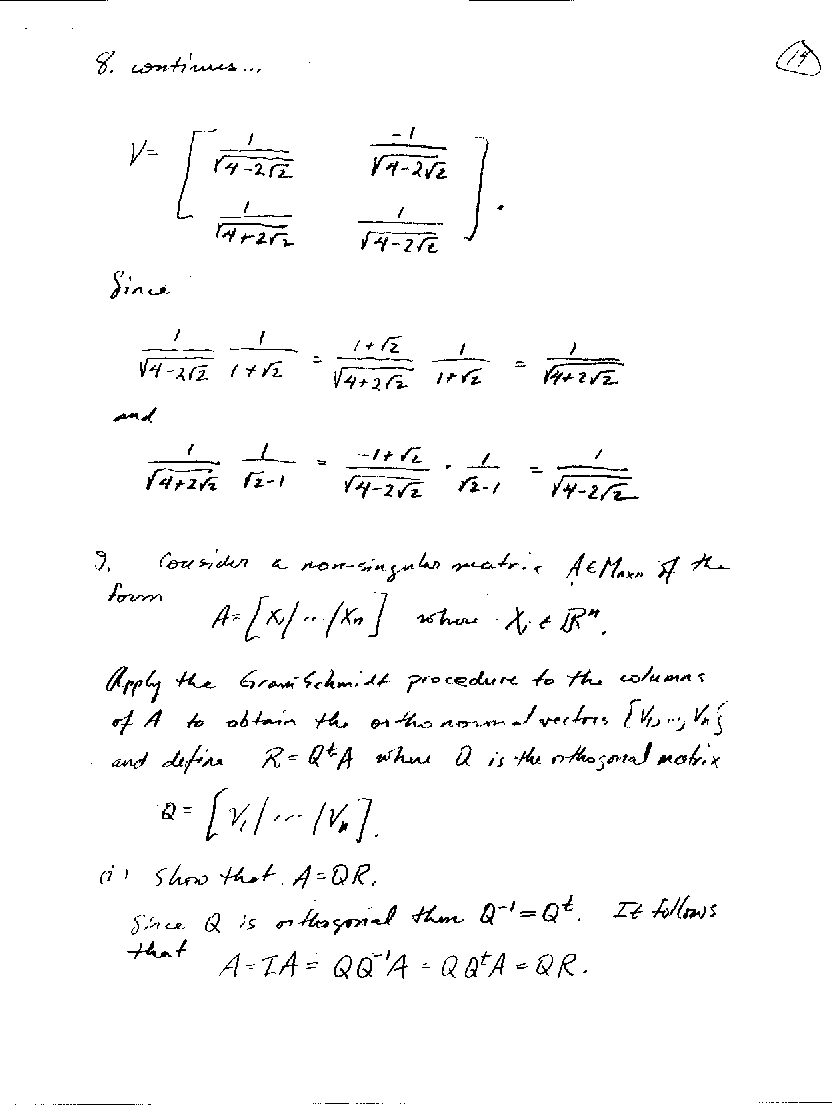 8. continues...
14
V = [ 1/√(4-2√2) -1/√(4-2√2)
1/√(4+2√2) 1/√(4-2√2) ].
Since
1/√(4-2√2) 1/(1+√2) = (1+√2)/√(4+2√2) 1/(1+√2) = 1/√(4+2√2)
and
1/√(4+2√2) 1/(√2-1) = (-1+√2)/√(4-2√2) · 1/(√2-1) = 1/√(4-2√2)
9. Consider a non-singular matrix A ∈ Mnxn of the
form
A = [X₁|...|Xn] where Xi ∈ ℝⁿ.
Apply the Gram Schmidt procedure to the columns
of A to obtain the orthonormal vectors {V₁,...,Vn}
and define R = QᵗA where Q is the orthogonal matrix
Q = [V₁|...|Vn].
(i) Show that A = QR.
Since Q is orthogonal then Q⁻¹ = Qᵗ. It follows
that
A = IA = QQ⁻¹A = QQᵗA = QR.